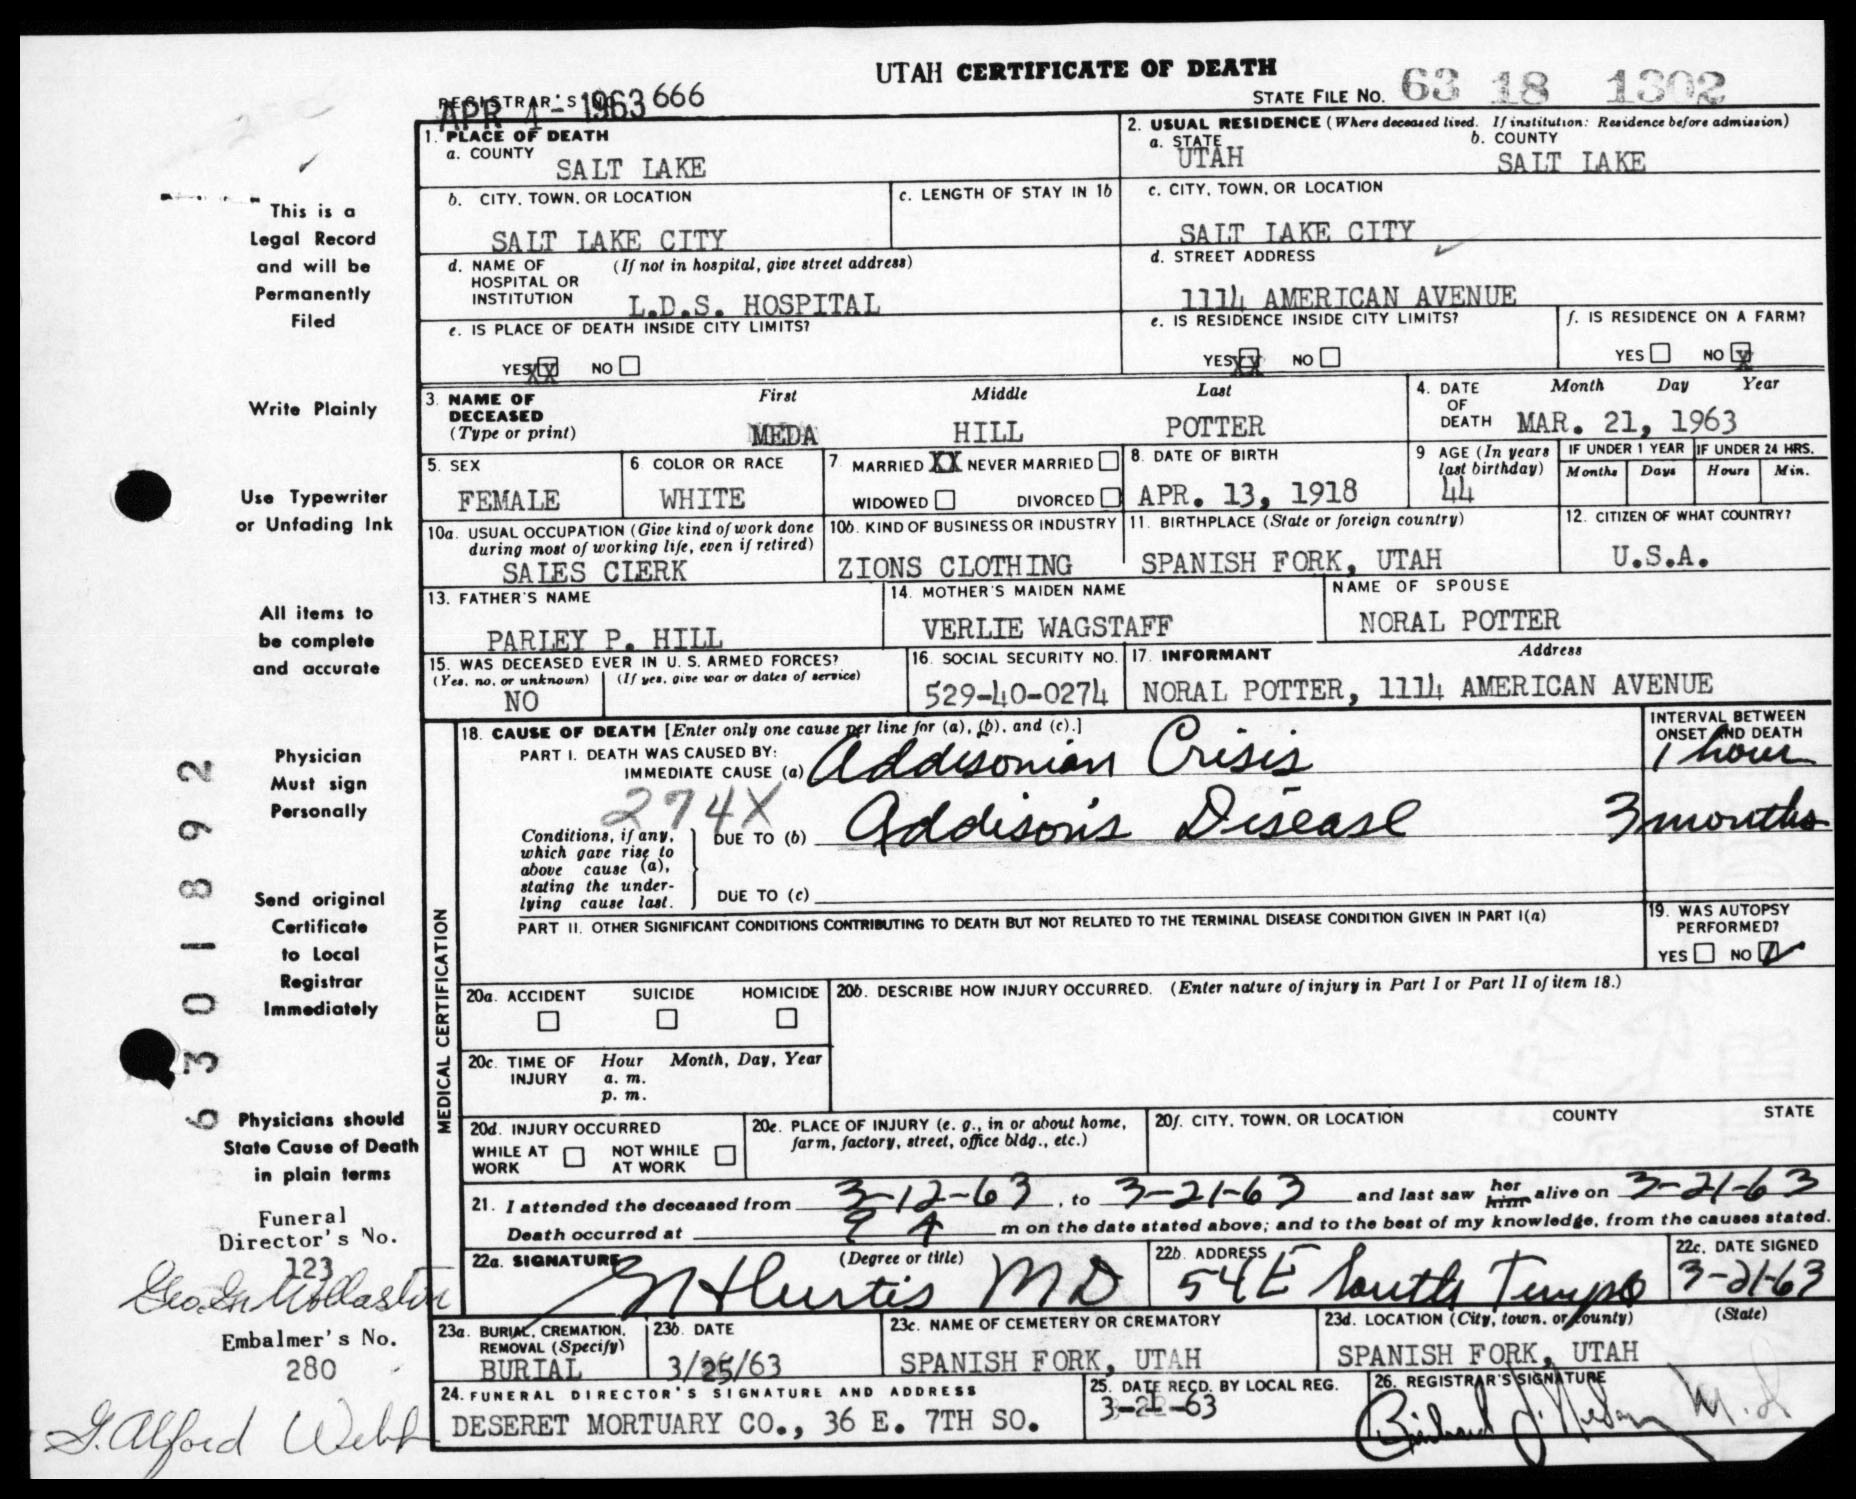 UTAH CERTIFICATE OF DEATH
REGISTRAR'S NO. 666
APR 4 - 1963
STATE FILE NO. 63 18 1302
1. PLACE OF DEATH
a. COUNTY
SALT LAKE
2. USUAL RESIDENCE (Where deceased lived. If institution: Residence before admission)
a. STATE
UTAH
b. COUNTY
SALT LAKE
b. CITY, TOWN, OR LOCATION
SALT LAKE CITY
c. LENGTH OF STAY IN 1b
c. CITY, TOWN, OR LOCATION
SALT LAKE CITY
d. NAME OF HOSPITAL OR INSTITUTION
(If not in hospital, give street address)
L.D.S. HOSPITAL
d. STREET ADDRESS
1114 AMERICAN AVENUE
e. IS PLACE OF DEATH INSIDE CITY LIMITS?
YES XX NO
e. IS RESIDENCE INSIDE CITY LIMITS?
YES XX NO
f. IS RESIDENCE ON A FARM?
YES NO X
3. NAME OF DECEASED (Type or print)
First Middle Last
MEDA HILL POTTER
4. DATE OF DEATH
Month Day Year
MAR. 21, 1963
5. SEX
FEMALE
6. COLOR OR RACE
WHITE
7. MARRIED XX NEVER MARRIED
WIDOWED DIVORCED
8. DATE OF BIRTH
APR. 13, 1918
9 AGE (In years last birthday)
44
IF UNDER 1 YEAR
Months Days
IF UNDER 24 HRS.
Hours Min.
10a. USUAL OCCUPATION (Give kind of work done during most of working life, even if retired)
SALES CLERK
10b. KIND OF BUSINESS OR INDUSTRY
ZIONS CLOTHING
11. BIRTHPLACE (State or foreign country)
SPANISH FORK, UTAH
12. CITIZEN OF WHAT COUNTRY?
U.S.A.
13. FATHER'S NAME
PARLEY P. HILL
14. MOTHER'S MAIDEN NAME
VERLIE WAGSTAFF
NAME OF SPOUSE
NORAL POTTER
15. WAS DECEASED EVER IN U.S. ARMED FORCES?
(Yes, no, or unknown) (If yes, give war or dates of service)
NO
16. SOCIAL SECURITY NO.
529-40-0274
17. INFORMANT Address
NORAL POTTER, 1114 AMERICAN AVENUE
MEDICAL CERTIFICATION
18. CAUSE OF DEATH [Enter only one cause per line for (a), (b), and (c).]
PART I. DEATH WAS CAUSED BY:
IMMEDIATE CAUSE (a) Addisonian Crisis
INTERVAL BETWEEN ONSET AND DEATH
1 hour
274X
Conditions, if any, which gave rise to above cause (a), stating the under-lying cause last.
DUE TO (b) Addison's Disease 3 months
DUE TO (c)
PART II. OTHER SIGNIFICANT CONDITIONS CONTRIBUTING TO DEATH BUT NOT RELATED TO THE TERMINAL DISEASE CONDITION GIVEN IN PART I(a)
19. WAS AUTOPSY PERFORMED?
YES NO
20a. ACCIDENT SUICIDE HOMICIDE
20b. DESCRIBE HOW INJURY OCCURRED. (Enter nature of injury in Part I or Part II of item 18.)
20c. TIME OF INJURY
Hour Month, Day, Year
a. m.
p. m.
20d. INJURY OCCURRED
WHILE AT WORK NOT WHILE AT WORK
20e. PLACE OF INJURY (e. g., in or about home, farm, factory, street, office bldg., etc.)
20f. CITY, TOWN, OR LOCATION COUNTY STATE
21. I attended the deceased from 3-12-63, to 3-21-63 and last saw her him alive on 3-21-63
Death occurred at 9 A m on the date stated above; and to the best of my knowledge, from the causes stated.
22a. SIGNATURE (Degree or title)
Curtis MD
22b. ADDRESS
54 E South Temple
22c. DATE SIGNED
3-21-63
23a. BURIAL, CREMATION, REMOVAL (Specify)
BURIAL
23b. DATE
3/25/63
23c. NAME OF CEMETERY OR CREMATORY
SPANISH FORK, UTAH
23d. LOCATION (City, town, or county) (State)
SPANISH FORK, UTAH
24. FUNERAL DIRECTOR'S SIGNATURE AND ADDRESS
DESERET MORTUARY CO., 36 E. 7TH SO.
25. DATE RECD. BY LOCAL REG.
26. REGISTRAR'S SIGNATURE
This is a
Legal Record
and will be
Permanently
Filed
Write Plainly
Use Typewriter
or Unfading Ink
All items to
be complete
and accurate
Physician
Must sign
Personally
Send original
Certificate
to Local
Registrar
Immediately
Physicians should
State Cause of Death
in plain terms
Funeral
Director's No.
123
Embalmer's No.
280
G. Alford Webb
6301892